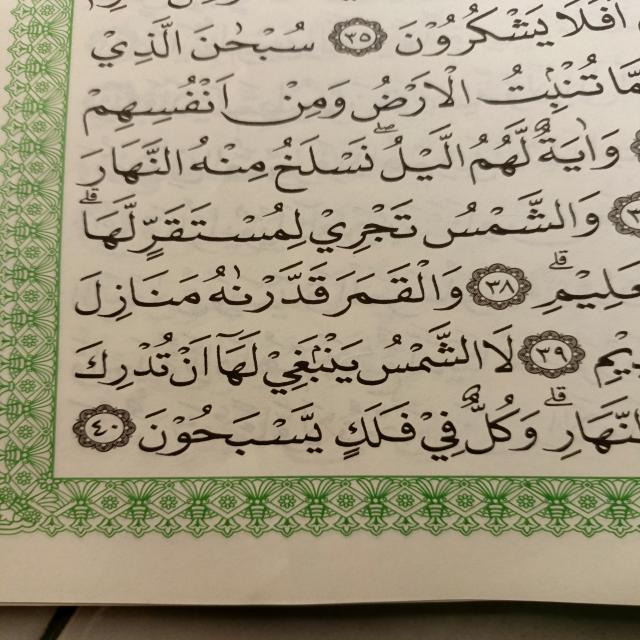 اَفَلَا يَشْكُرُوْنَ ٣٥ سُبْحٰنَ الَّذِيْ
تُنْۢبِتُ الْاَرْضُ وَمِنْ اَنْفُسِهِمْ
وَاٰيَةٌ لَّهُمُ الَّيْلُ ۖنَسْلَخُ مِنْهُ النَّهَارَ
وَالشَّمْسُ تَجْرِيْ لِمُسْتَقَرٍّ لَّهَا ۗ
٣٨ وَالْقَمَرَ قَدَّرْنٰهُ مَنَازِلَ
٣٩ لَا الشَّمْسُ يَنْۢبَغِيْ لَهَآ اَنْ تُدْرِكَ
النَّهَارِ ۗ وَكُلٌّ فِيْ فَلَكٍ يَّسْبَحُوْنَ ٤٠